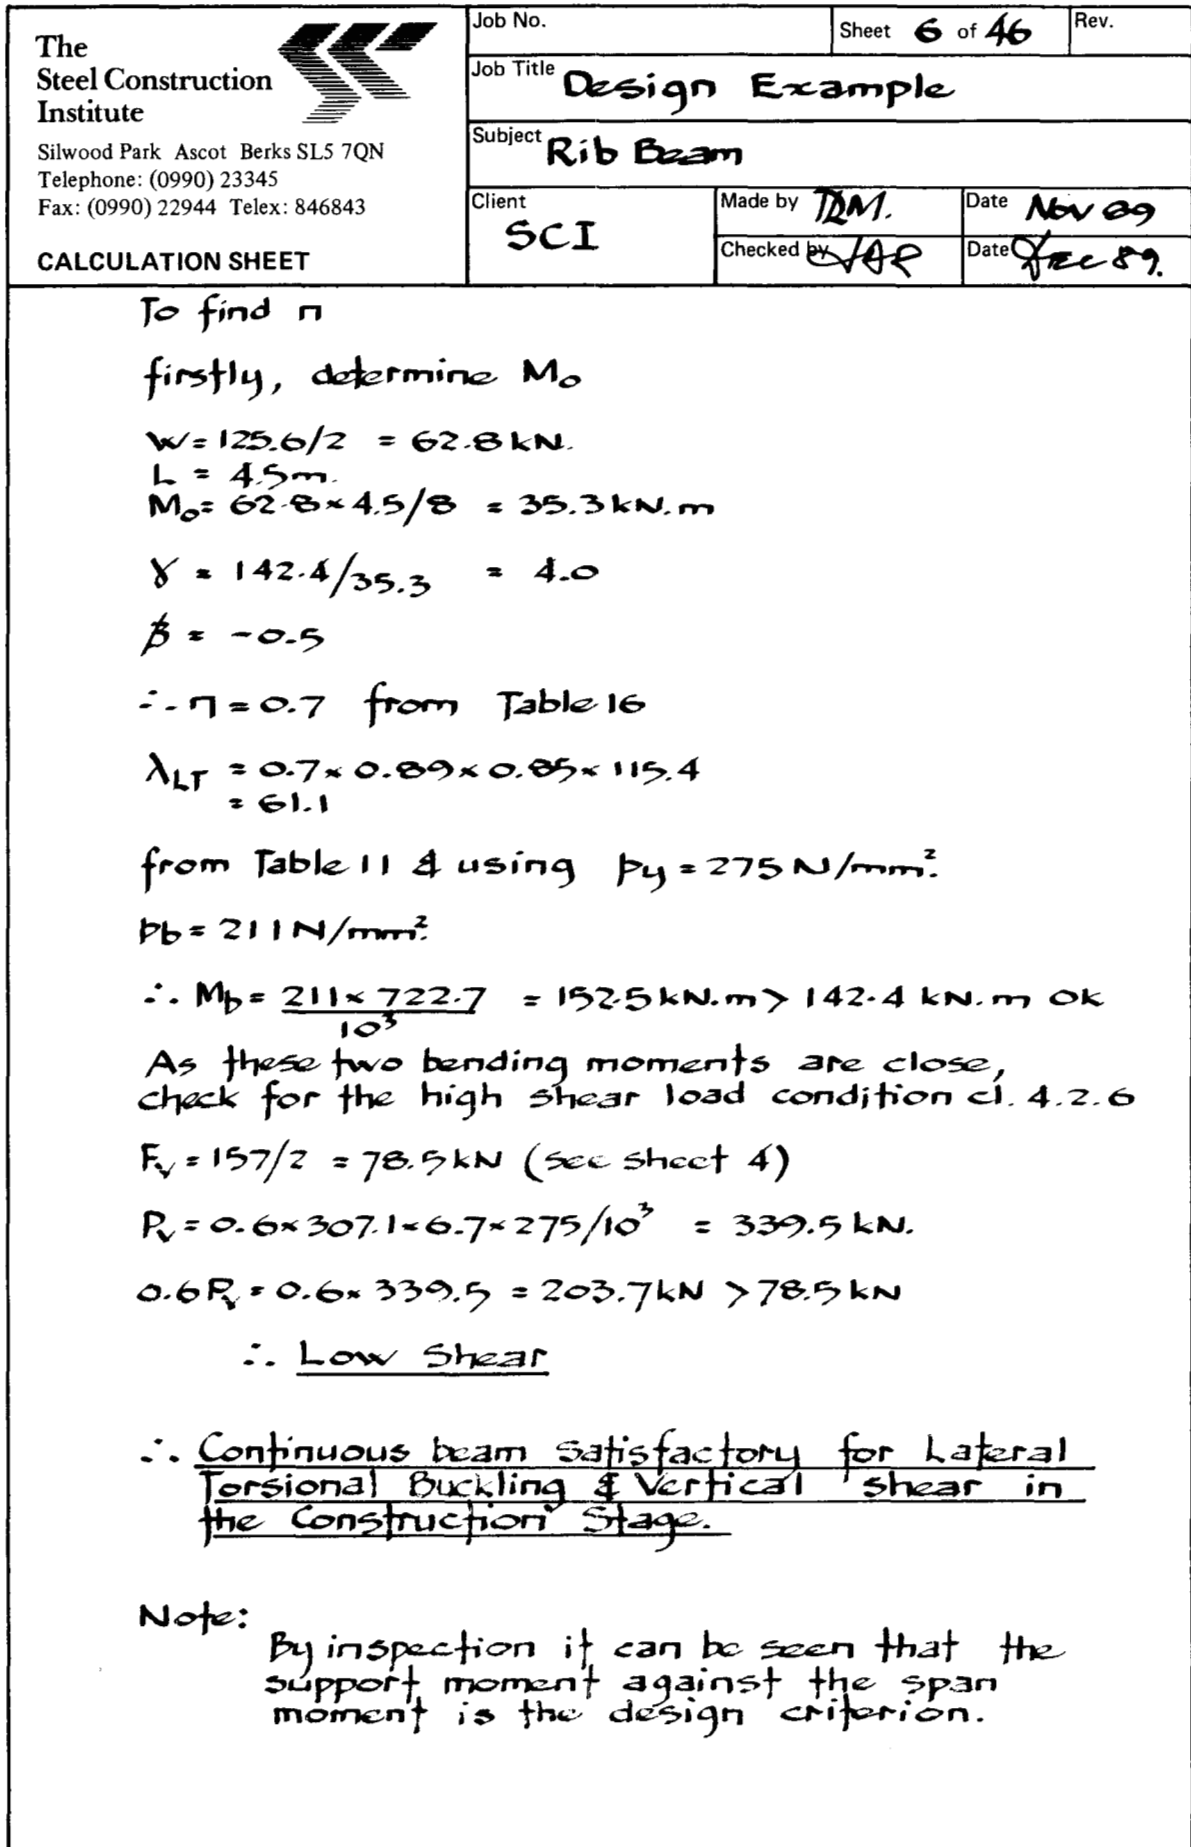 The
Steel Construction
Institute
Silwood Park Ascot Berks SL5 7QN
Telephone: (0990) 23345
Fax: (0990) 22944 Telex: 846843
CALCULATION SHEET
Job No.
Sheet 6 of 46
Rev.
Job Title Design Example
Subject Rib Beam
Client SCI
Made by
Date Nov 89
Checked by
Date Dec 89.
To find n
firstly, determine Mo
W = 125.6/2 = 62.8 kN.
L = 4.5m.
Mo = 62.8 × 4.5/8 = 35.3 kN.m
γ = 142.4/35.3 = 4.0
β = -0.5
∴ n = 0.7 from Table 16
λLT = 0.7 × 0.89 × 0.85 × 115.4
= 61.1
from Table 11 & using py = 275 N/mm².
pb = 211 N/mm².
∴ Mb = 211 × 722.7 / 10³ = 152.5 kN.m > 142.4 kN.m OK
As these two bending moments are close,
check for the high shear load condition cl. 4.2.6
Fv = 157/2 = 78.5 kN (see sheet 4)
Pv = 0.6 × 307.1 × 6.7 × 275/10³ = 339.5 kN.
0.6 Pv = 0.6 × 339.5 = 203.7 kN > 78.5 kN
∴ Low Shear
∴ Continuous beam satisfactory for Lateral
Torsional Buckling & Vertical shear in
the Construction Stage.
Note:
By inspection it can be seen that the
support moment against the span
moment is the design criterion.